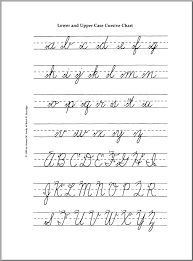 Lower and Upper Case Cursive Chart
a b c d e f g
h i j k l m
n o p q r s t u
v w x y z
A B C D E F G H I
J K L M N O P Q R
S T U V W X Y Z